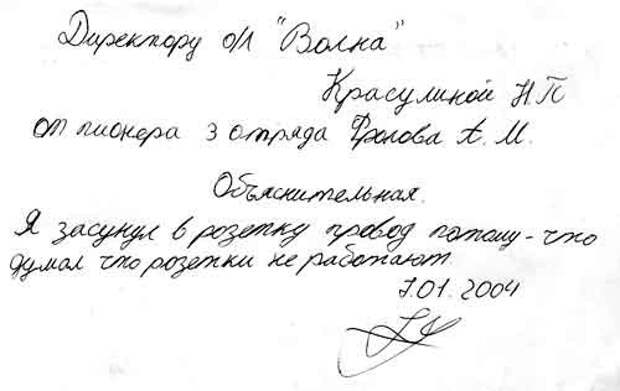 Директору о/л "Волна"
Красулиной Н П
от пионера 3 отряда Фролова А. М.
Объяснительная.
Я засунул в розетку провод потому-что
думал что розетки не работают
7.01.2004